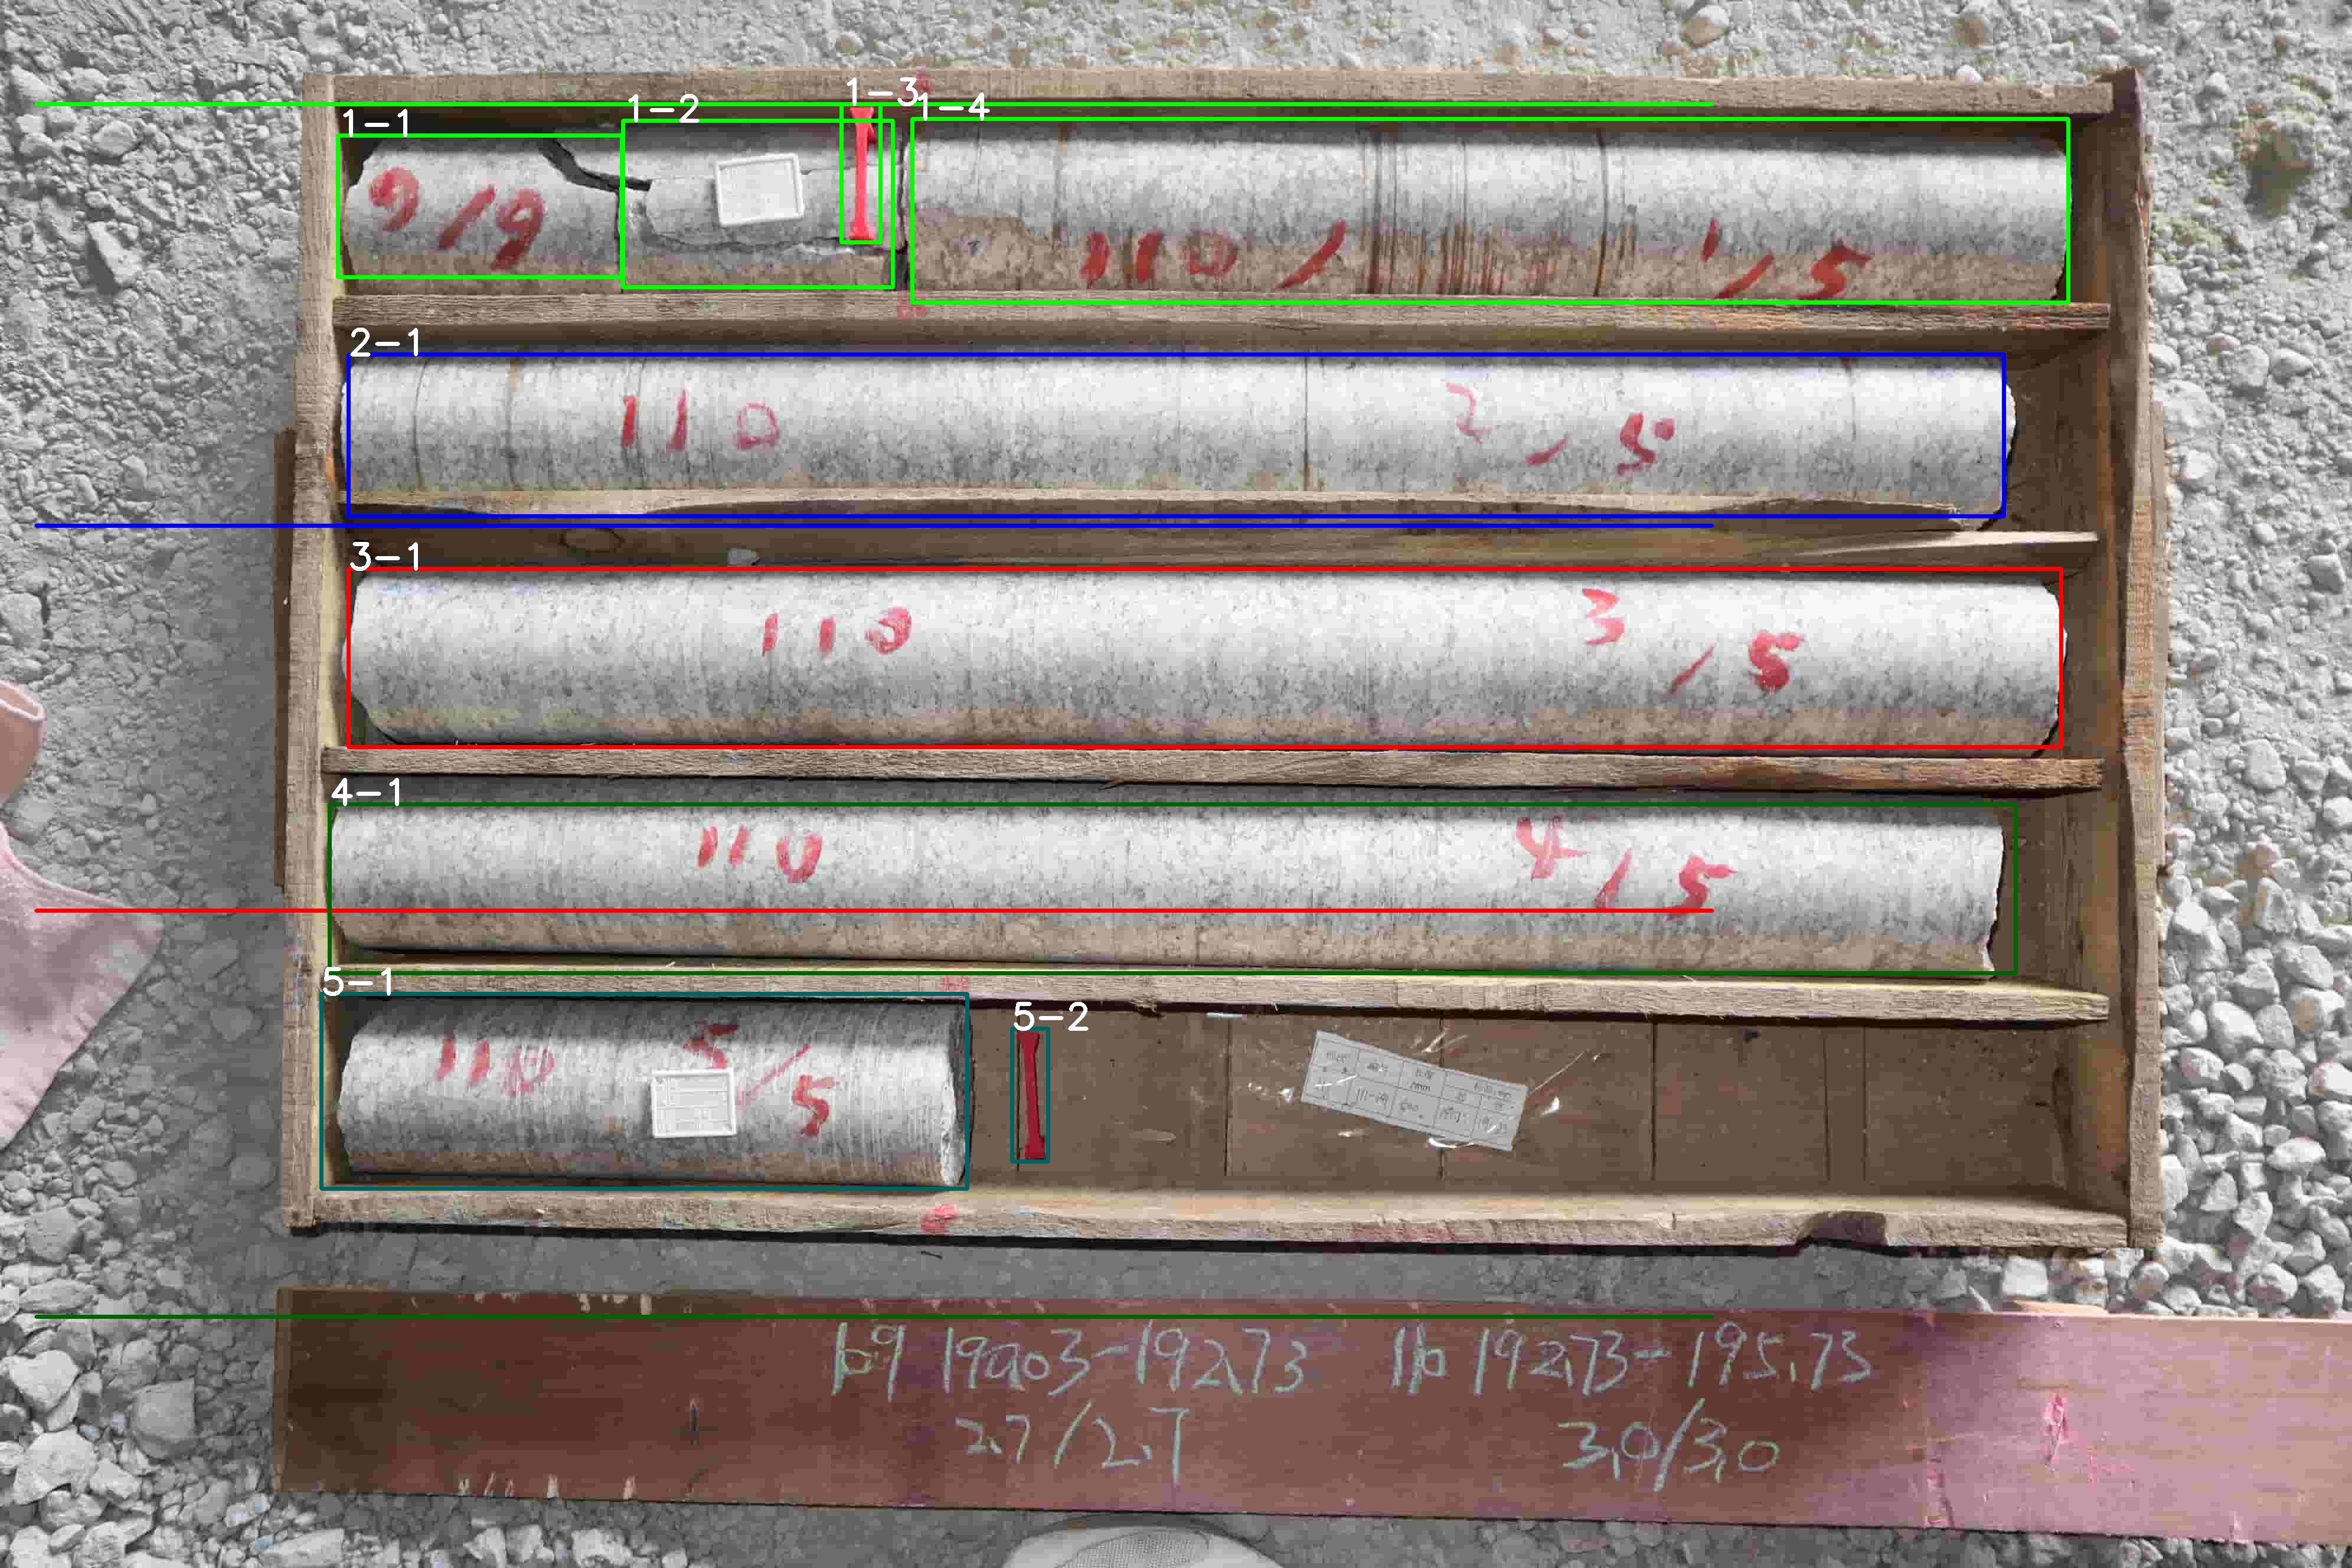 1-1
1-2
1-3
1-4
9/9
110/
1/5
2-1
110
2/5
3-1
110
3/5
4-1
110
4/5
5-1
5-2
110
5/5
109 190.03-192.73
2.7/2.7
110 192.73-195.73
3.0/3.0